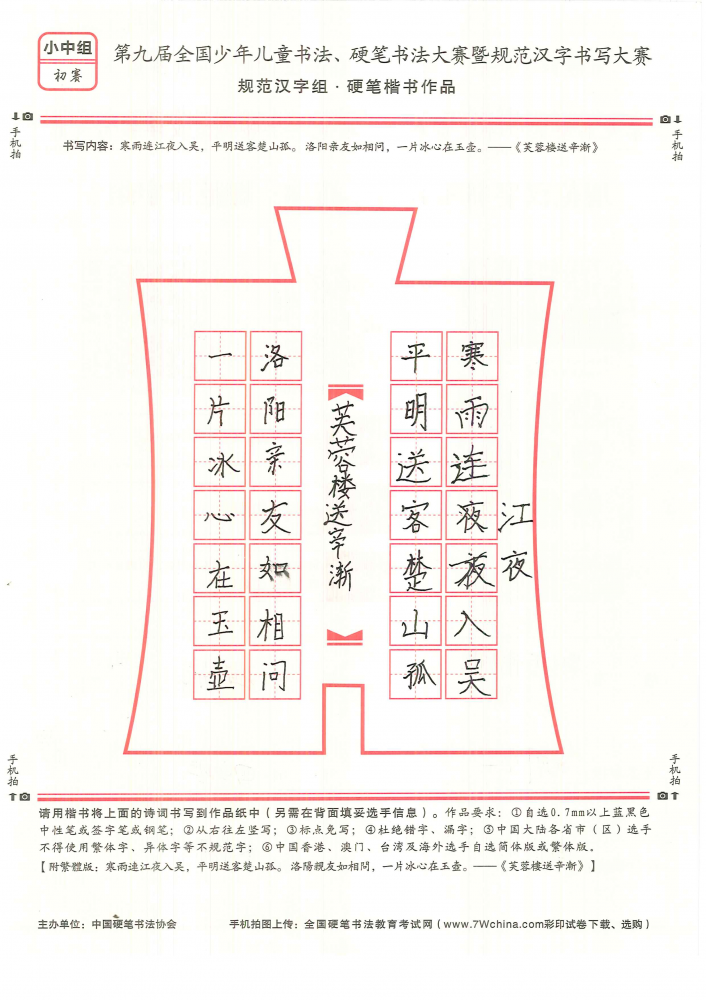 小中组
初赛
第九届全国少年儿童书法、硬笔书法大赛暨规范汉字书写大赛
规范汉字组·硬笔楷书作品
手机拍
手机拍
书写内容：寒雨连江夜入吴，平明送客楚山孤。洛阳亲友如相问，一片冰心在玉壶。——《芙蓉楼送辛渐》
江夜
寒雨连夜夜入吴
平明送客楚山孤
芙蓉楼送辛渐
洛阳亲友如相问
一片冰心在玉壶
手机拍
手机拍
请用楷书将上面的诗词书写到作品纸中（另需在背面填妥选手信息）。作品要求：①自选0.7mm以上蓝黑色
中性笔或签字笔或钢笔；②从右往左竖写；③标点免写；④杜绝错字、漏字；⑤中国大陆各省市（区）选手
不得使用繁体字、异体字等不规范字；⑥中国香港、澳门、台湾及海外选手自选简体版或繁体版。
【附繁體版：寒雨連江夜入吳，平明送客楚山孤。洛陽親友如相問，一片冰心在玉壺。——《芙蓉樓送辛漸》】
主办单位：中国硬笔书法协会
手机拍图上传：全国硬笔书法教育考试网（www.7Wchina.com彩印试卷下载、选购）